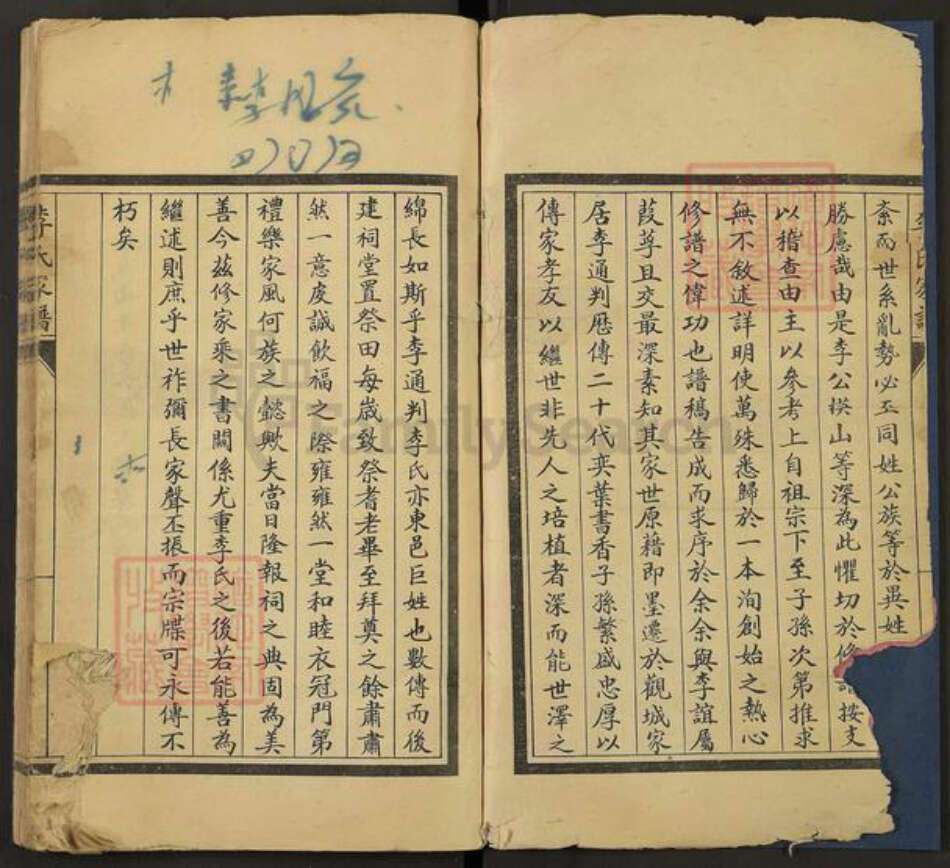 李氏家譜
紊而世系亂勢必至同姓公族等於異姓
勝慮哉由是李公模山等深為此懼切於修譜按支
以稽查由主以參考上自祖宗下至子孫次第推求
無不敘述詳明使萬殊悉歸於一本洵創始之熱心
修譜之偉功也譜稿告成而求序於余余與李誼屬
葭莩且交最深素知其家世原藉即墨遷於觀城家
居李通判歷傳二十代奕葉書香子孫繁盛忠厚以
傳家孝友以繼世非先人之培植者深而能世澤之
綿長如斯乎李通判李氏亦東邑巨姓也數傳而後
建祠堂置祭田每歲致祭耆老畢至拜奠之餘肅肅
然一意虔誠飲福之際雍雍然一堂和睦衣冠門第
禮樂家風何族之懿歟夫當日隆報祠之典固為美
善今茲修家乘之書關係尤重李氏之後若能善為
繼述則庶乎世祚彌長家聲丕振而宗牒可永傳不
朽矣
李氏家譜
FamilySearch